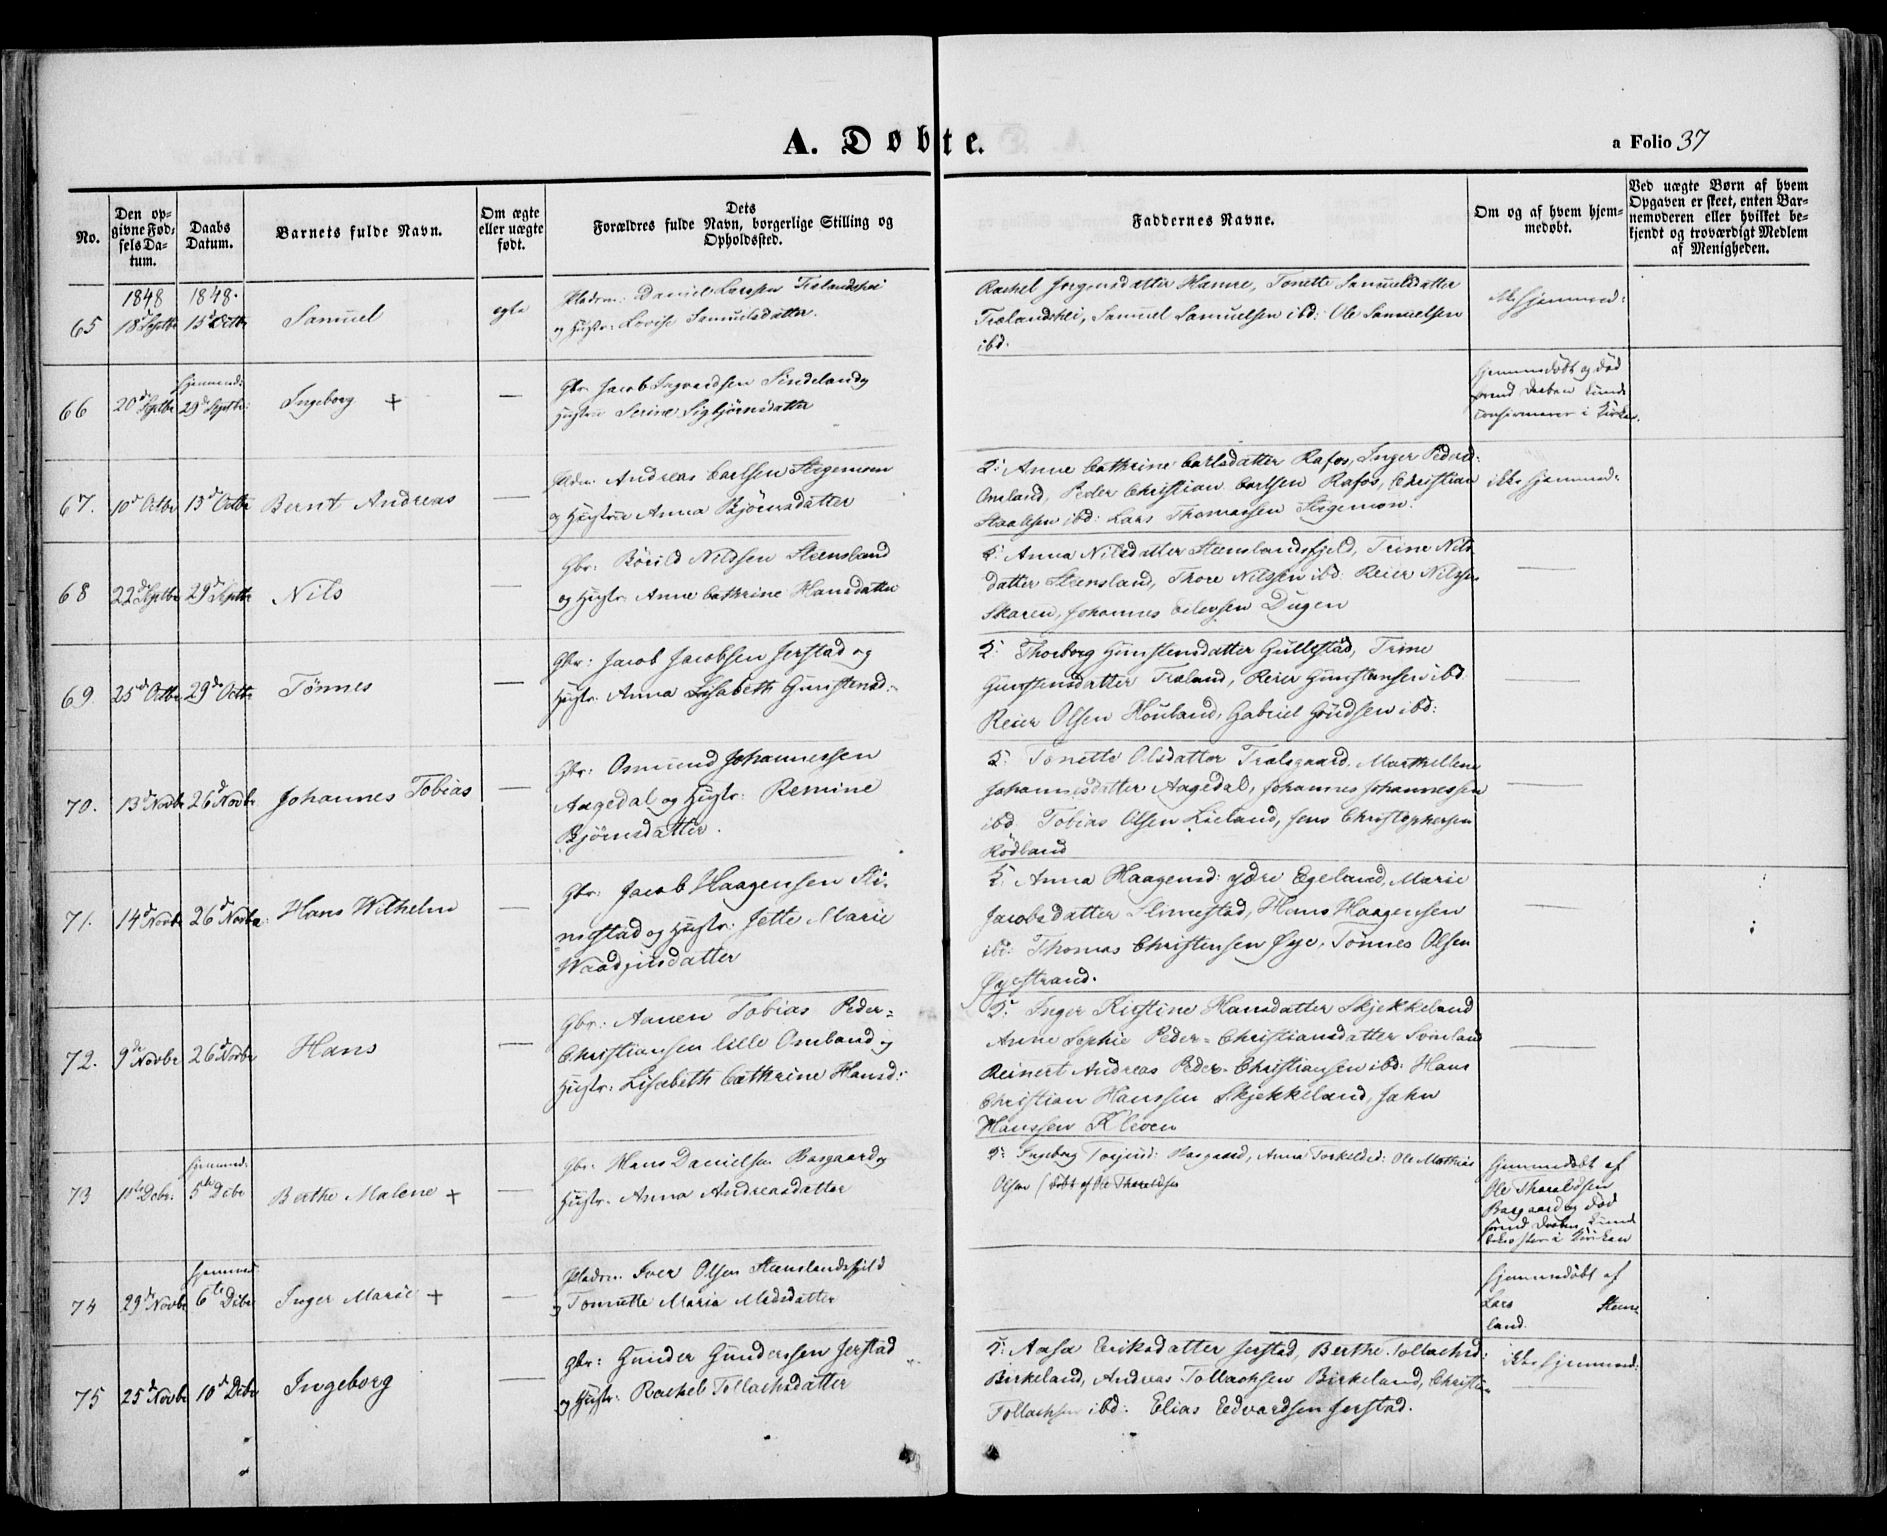 A. Døbte.
a Folio 37
No.
Den op-
givne Fød-
sels Da-
tum.
Daabs
Datum.
Barnets fulde Navn.
Om ægte
eller uægte
født.
Dets
Forældres fulde Navn, borgerlige Stilling og
Opholdssted.
Faddernes Navne.
Om og af hvem hjem-
medøbt.
Ved uægte Børn af hvem
Opgaven er skeet, enten Bar-
nemoderen eller hvilket be-
kjendt og troværdigt Medlem
af Menigheden.
1848
1848.
65
18d Septbr
15d Octbr
Samuel
egte
Pladsm: Daniel Larssen Trælandshei
og Hustr: Lovise Samuelsdatter.
Rachel Jørgensdatter Hamre, Tonette Samuelsdatter
Trælandshei, Samuel Samuelsen ibd: Ole Samuelsen
ibd.
ikke hjemmed:
66
20d Septbr
hjemmed:
29de Septbr:
Ingeborg +
—
Gbr Jacob Ingvardsen Sindeland og
Hustru Serine Sigbjørnsdatter
hjemmedøbt og død
forend Daaben kunde
confirmeres i Kirken.
67.
10d Octbr
15d Octbr
Bernt Andreas
—
Pldm: Andreas Carlsen Stegemoen
og Hustrue Anna Bjørnsdatter
F: Anne Cathrine Carlsdatter Rafos, Inger Pedersd:
Omland, Peder Christian Carlsen Rafos, Christian
Staalesen ibd: Lars Thomassen Stegemoen.
ikke hjemmed:
68
22d Septbr
29d Septbr
Nils
—
Gbr: Børild Nilssen Steensland
og Hustr: Anne Cathrine Hansdatter
F: Anna Nilsdatter Steenslandsfjeld, Trine Nils
datter Steensland, Thore Nilssen ibd: Reier Nilssen
Skaren, Johannes Eilevsen Dugen
—
69
25de Octbr
29de Octbr
Tönnes
—
Gbr: Jacob Jacobsen Jerstad og
Hustr: Anna Lisabeth Gunstensd:
F: Thorborg Gunstensdatter Gullestad, Trine
Gunstensdatter Træland, Reier Gunstensen ibd.
Reier Olsen Houland, Gabriel Gundsen ibd:
—
70.
13d Novbr
26d Novbr
Johannes Tobias
—
Gbr: Osmund Johannessen
Aagedal og Hustr: Remine
Bjørnsdatter.
F: Tonette Olsdatter Trælsgaard, Marthellene
Johannesdatter Aagedal, Johannes Johannessen
ibd Tobias Olsen Lieland, Jens Christophersen
Rødland
—
71.
14d Novbr
26d Novbr:
Hans Wilhelm
—
Gbr: Jacob Haagensen Sli-
mestad og Hustr: Jette Marie
Waadjusdatter
F: Anna Haagensd: ydre Egeland, Marie
Jacobsdatter Slimestad, Hans Haagensen
ibd: Thomas Christensen Øye, Tønnes Olsen
Øyestrand.
—
72.
9de Novbr
26d Novbr
Hans
—
Gbr: Aanen Tobias Peder-
Christiansen lille Omland og
Hustr: Lisabeth Cathrine Hansd:
F: Inger Kirstine Hansdatter Skjekkeland
Anne Sophie Peder-Christiansdatter Omland
Reinert Andreas Peder-Christiansen ibd: Hans
Christian Hanssen Skjekkeland, Jahn
Hanssen Kleven
—
73
1ste Decbr:
hjemmed:
5te Decbr
Berthe Malene +
—
Gbr: Hans Danielsen Basgaard og
Hustr. Anna Andreasdatter
F: Ingeborg Torjusd: Basgaard, Anna Torkildsd: Ole Mathias
Olsen (døbt af Ole Tharaldsen
hjemmedøbt af
Ole Tharaldsen
Basgaard og død
forend Daaben kunde
i Kirken
74
29d Novbr
hjemmed
6te Decbr
Inger Marie +
—
Pladsm. Iver Olsen Steenslandsfjeld
og Tonnette Maria Madsdatter
hjemmedøbt af
Lars Steens
land.
75
25d Novbr
10d Decbr
Ingeborg
—
Gbr: Gunder Gunderssen Jerstad
og Hustr: Rachel Tollachsdatter
F: Aasa Eriksdatter Jerstad, Berthe Tollachsd:
Birkeland, Andreas Tollachsen Birkeland, Christen
Tollachsen ibd: Elias Edvardsen Jerstad.
ikke hjemmed: